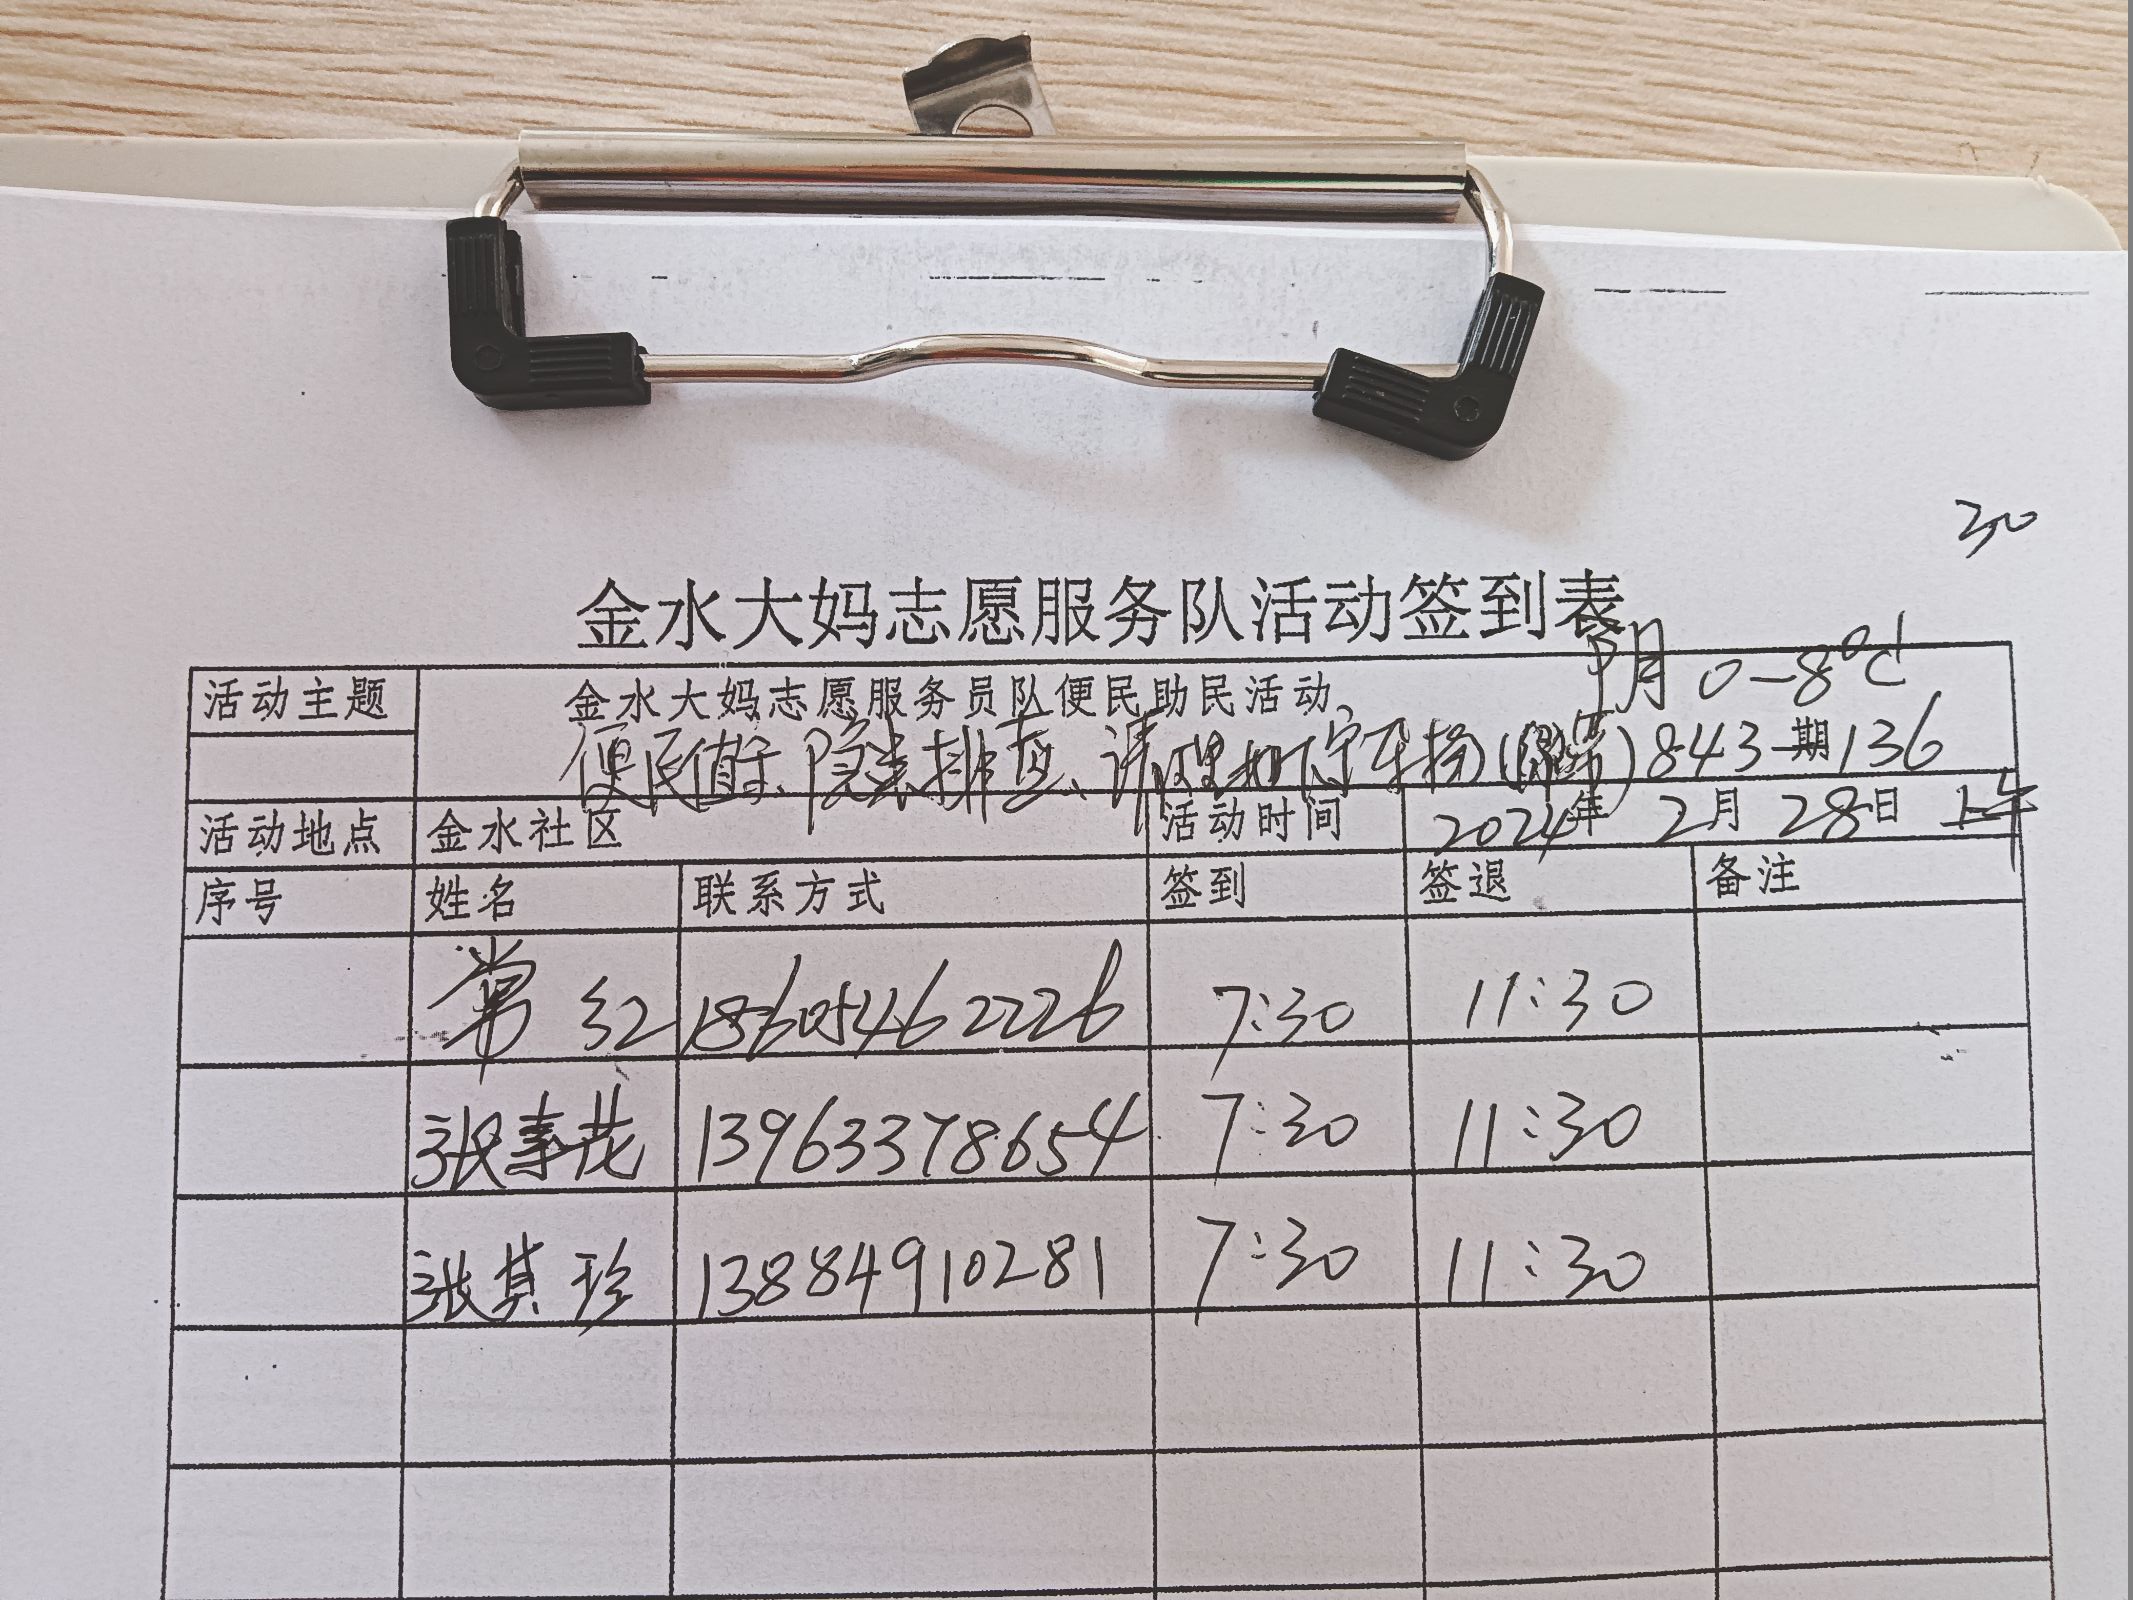 30
金水大妈志愿服务队活动签到表
阴 0-8℃
活动主题 金水大妈志愿服务员队便民助民活动、
便民值班、隐患排查、清理 843期136
活动地点 金水社区 活动时间 2024年 2月 28日 上午
序号 姓名 联系方式 签到 签退 备注
常红 18605462226 7:30 11:30
张素花 13963378654 7:30 11:30
张其珍 13884910281 7:30 11:30